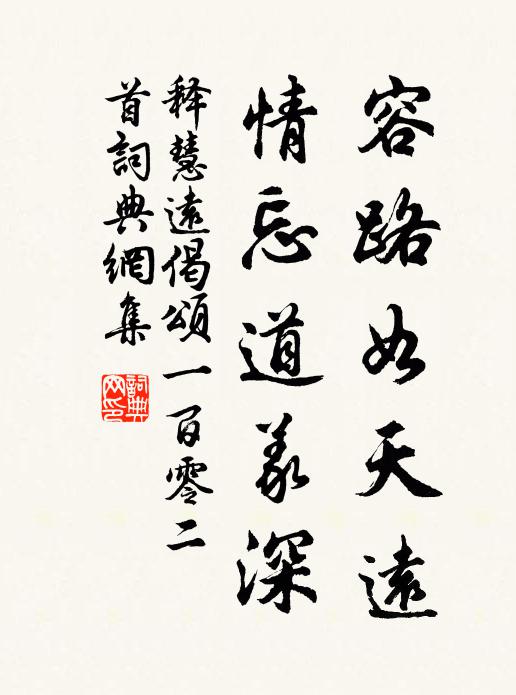 容路如天遠
情忘道义深
释慧遠偈頌一百零二
首詞典網集
詞典
网印